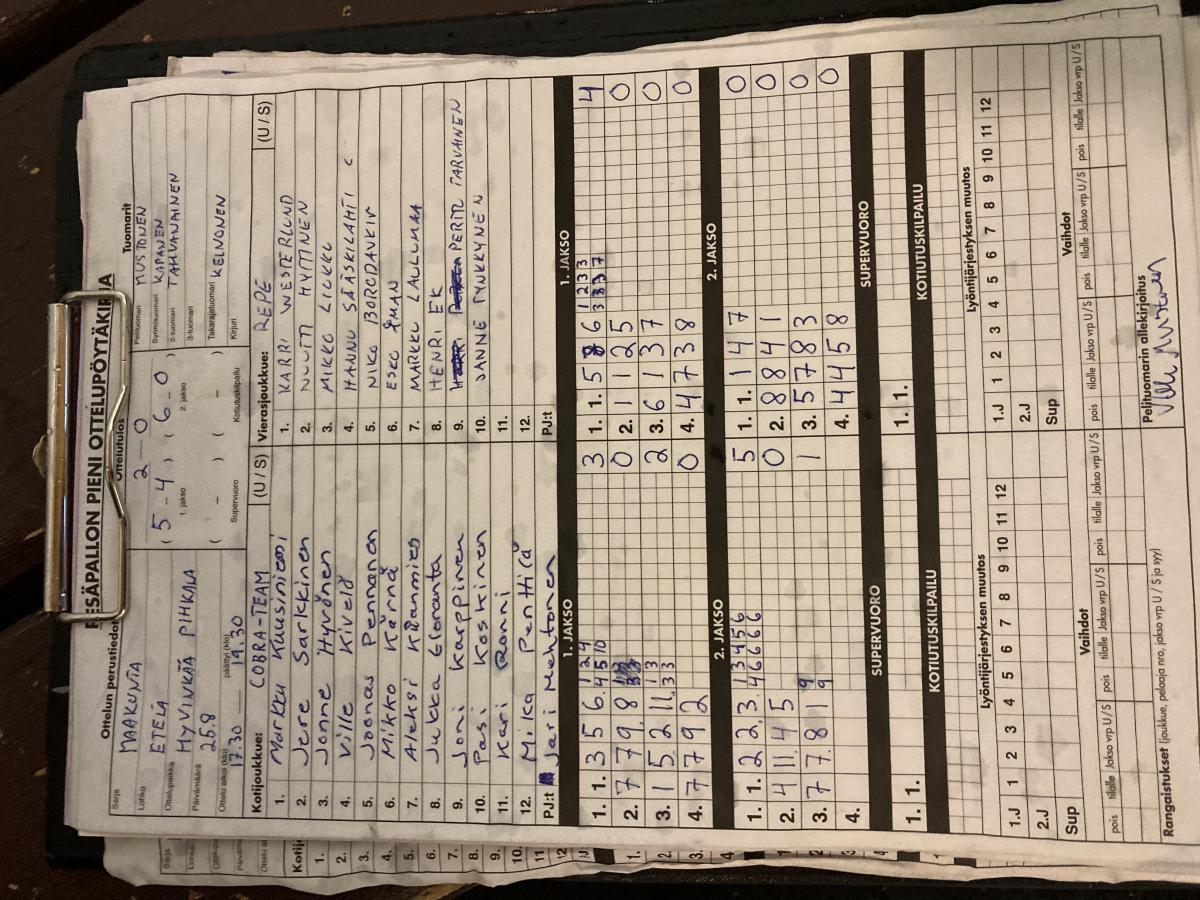 PESÄPALLON PIENI OTTELUPÖYTÄKIRJA
Ottelun perustiedot
Sarja MAAKUNTA
Lohko ETELÄ
Ottelupaikka HYVINKÄÄ PIHKALA
Päivämäärä 25.8
Ottelu alkoi (klo) 17.30 päättyi (klo) 19.30
Ottelutulos
2 - 0
( 5 - 4 ) ( 6 - 0 )
1. jakso 2. jakso
( - ) ( - )
Supervuoro Kotiutuskilpailu
Tuomarit
Pelituomari MUSTONEN
Syöttötuomari KAPANEN
2-tuomari TAHVANAINEN
3-tuomari
Takarajatuomari KEINONEN
Kirjuri
Kotijoukkue: COBRA-TEAM (U / S)
1. Markku Kuusiniemi
2. Jere Sarkkinen
3. Jonne Hyvönen
4. Ville Kivelä
5. Joonas Pennanen
6. Mikko Kärnä
7. Aleksi
8. Jukka Eloranta
9. Joni Karppinen
10. Pasi Koskinen
11. Kari Ronni
12. Mika Penttilä
PJ:t Jari Mehtonen
Vierasjoukkue: REPE (U / S)
1. KARRI WESTERLUND
2. HYTINEN
3. MIKKO
4. HANNU SÄÄSKILAHTI C
5. NIKO
6. ESKO
7. MARKKU LAULUMAA
8. HENRI EK
9. PERTTU PARVAINEN
10. JANNE TYNKKYNEN
11.
12.
PJ:t
1. JAKSO
1. 1. 3 5 6. 3
2. 7 7 9. 8 0
3. 1 5 2 11. 2
4. 7 7 9 2 0
2. JAKSO
1. 1. 2 2 3. 5
2. 4 11. 4 5 0
3. 7 7. 8 1 9 1
4.
SUPERVUORO
1. 1.
KOTIUTUSKILPAILU
1. JAKSO
1. 1. 5 6 4
2. 1 1 2 5 0
3. 6 1 3 7 0
4. 4 7 3 8 0
2. JAKSO
1. 1. 1 4 7 0
2. 8 8 4 1 0
3. 5 7 8 3 0
4. 4 4 5 8 0
SUPERVUORO
1. 1.
KOTIUTUSKILPAILU
Lyöntijärjestyksen muutos
1.J 1 2 3 4 5 6 7 8 9 10 11 12
2.J
Sup
Vaihdot
pois tilalle Jakso vrp U / S pois tilalle Jakso vrp U / S pois tilalle Jakso vrp U / S
Lyöntijärjestyksen muutos
1.J 1 2 3 4 5 6 7 8 9 10 11 12
2.J
Sup
Vaihdot
pois tilalle Jakso vrp U / S pois tilalle Jakso vrp U / S pois tilalle Jakso vrp U / S
Rangaistukset (joukkue, pelaaja nro, jakso vrp U / S ja syy)
Pelituomarin allekirjoitus